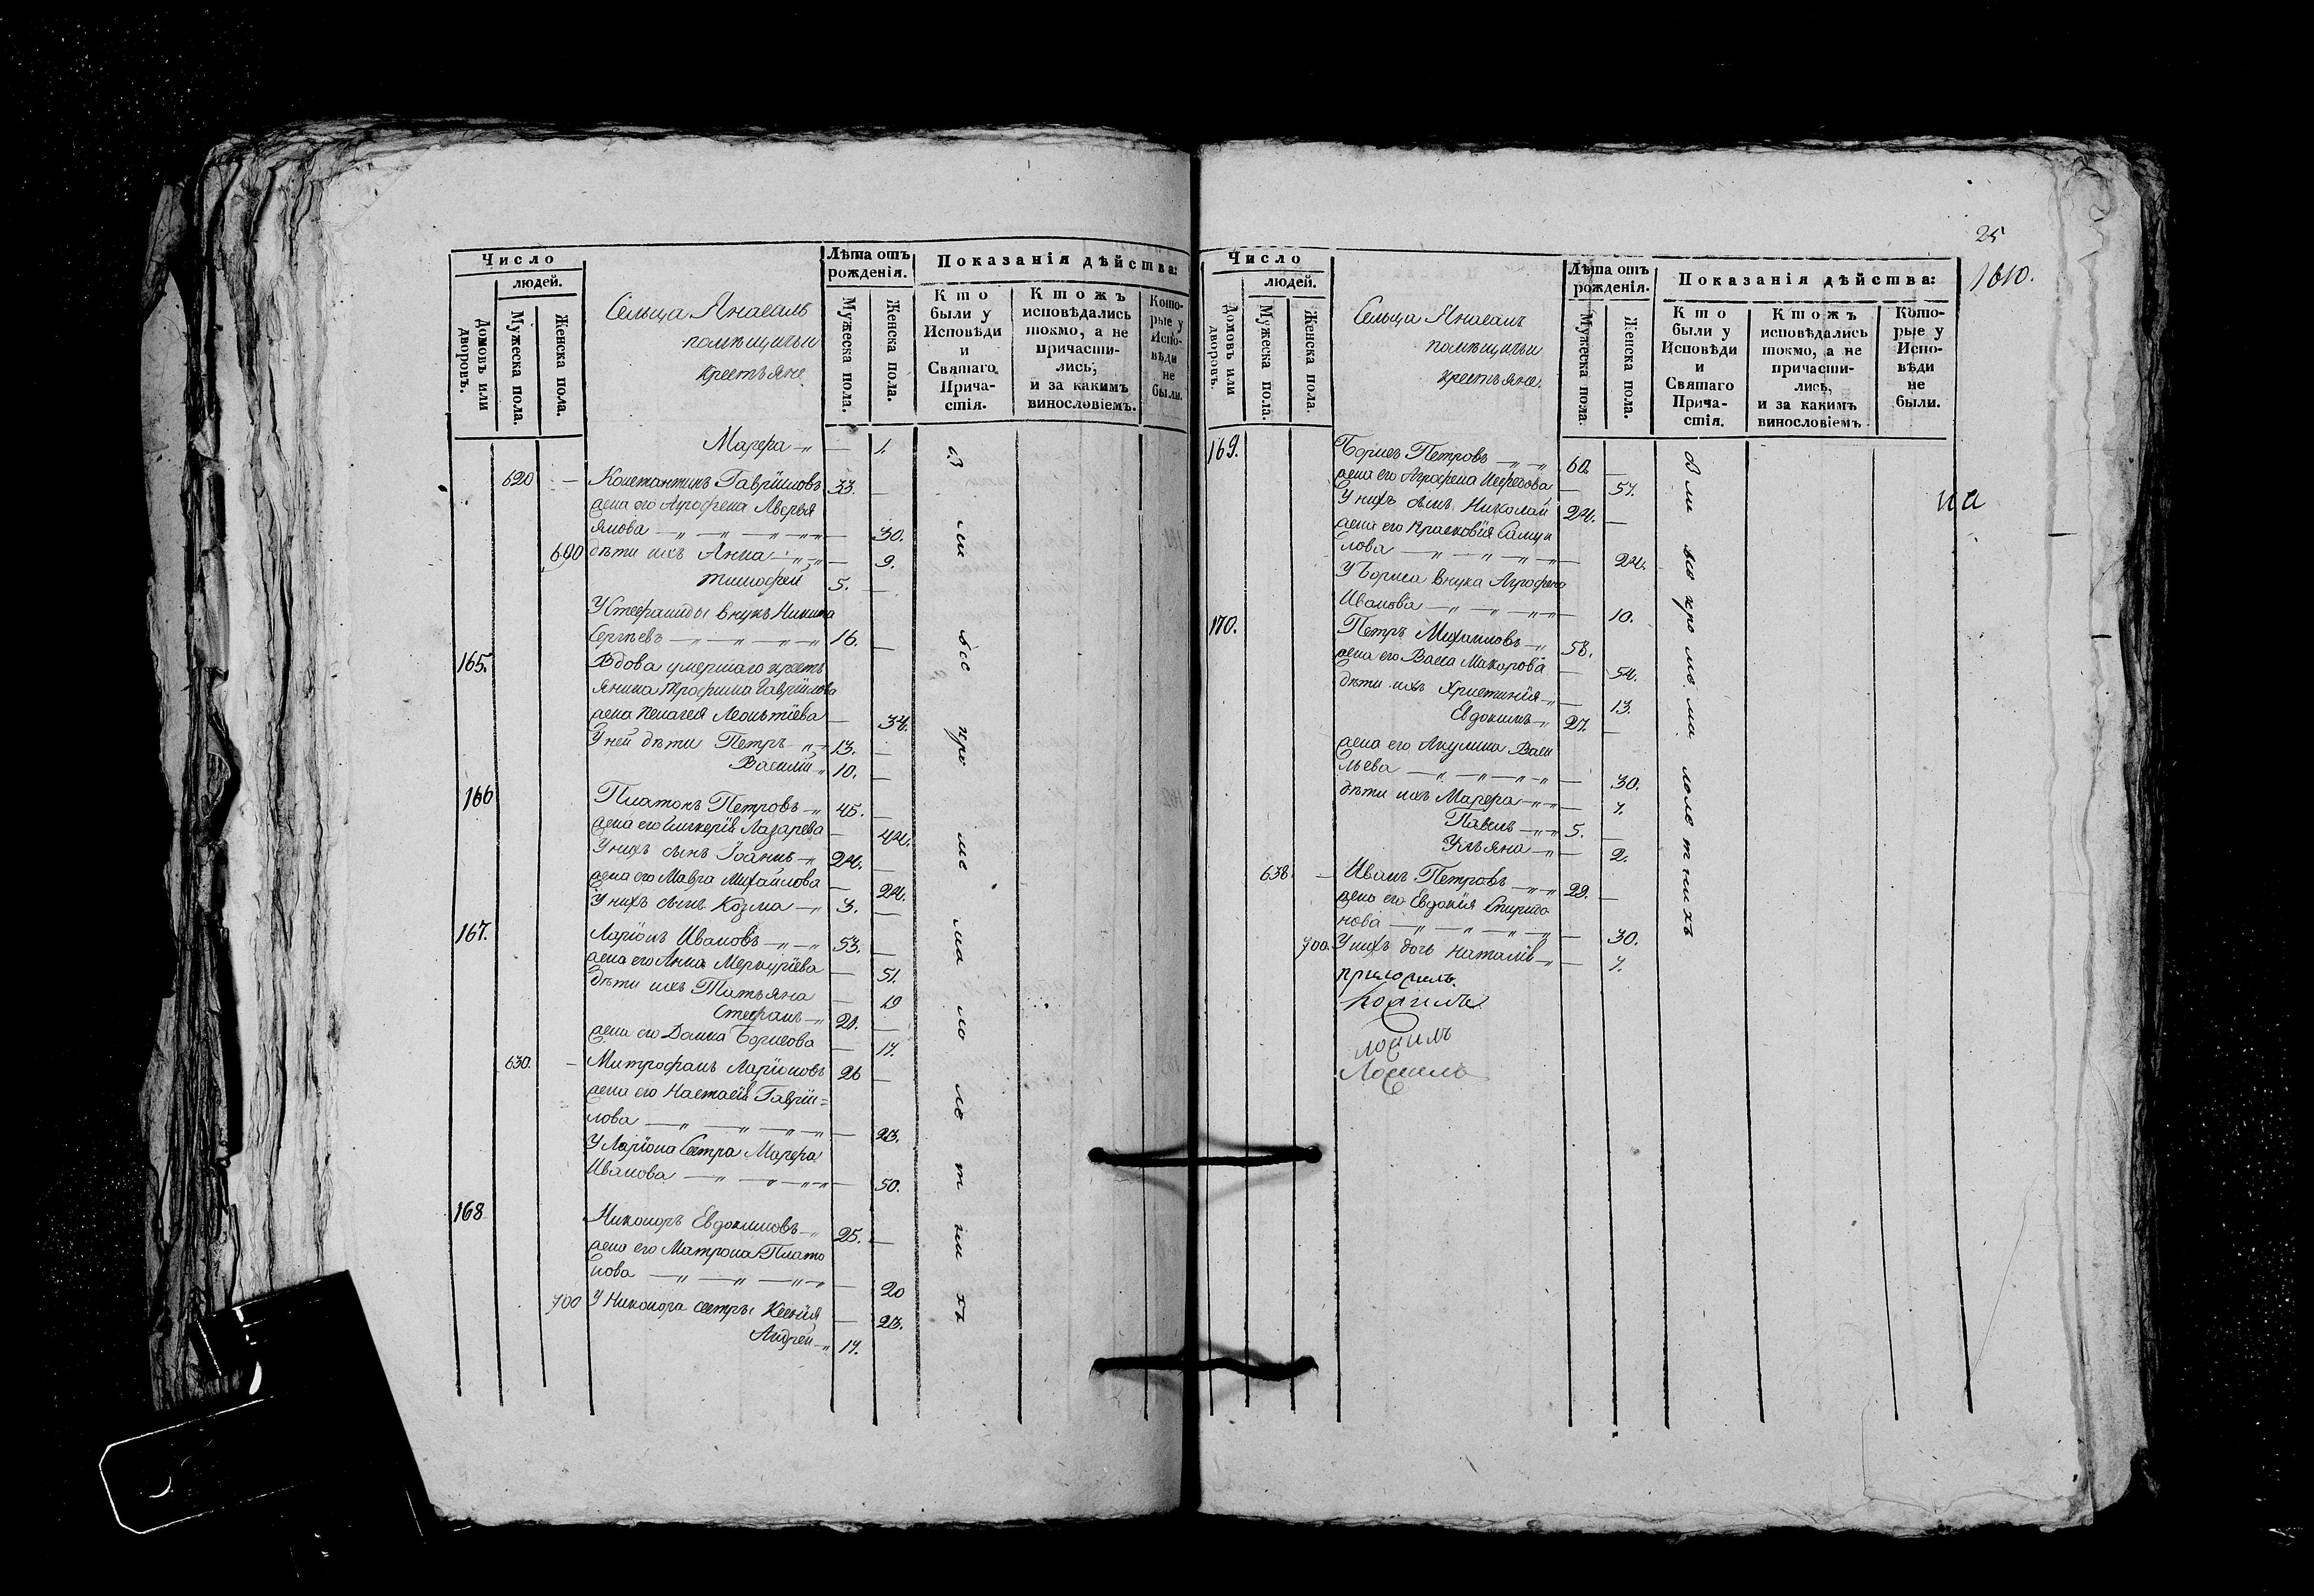 Число
людей.
Домовъ или дворовъ.
Мужеска пола.
Женска пола.
Сельца
помѣщичьи
крестьяне
Лѣта отъ
рожденія.
Мужеска пола.
Женска пола.
Показанія дѣйства:
Кто
были у
Исповѣди
и
Святаго
Прича-
стія.
Ктожъ
исповѣдались
токмо, а не
причасти-
лись,
и за какимъ
винословіемъ.
Кото-
рые у
Испо-
вѣди
не
были.
Марѳа — 1.
620 — Константинъ Гаврііловъ 33. —
жена его Агрофена Аверья
янова — 30.
690 дѣти ихъ Анна — 9.
Тимофей 5. —
У Стефаниды внукъ Никита
Сергѣевъ 16. —
165. Вдова умершаго кресть
янина Трофима Гавріілова
жена Пелагея Леонтіева — 34.
У ней дѣти Петръ 13. —
Василій 10. —
166 Платонъ Петровъ 45. —
жена его Гликерія Лазарева — 44.
У нихъ сынъ Іоаннъ 24. —
жена его Мавра Михайлова — 24.
У нихъ сынъ Козма 3. —
167. Ларіонъ Ивановъ 53. —
жена его Анна Меркуріева — 51.
дѣти ихъ Татьяна — 19
Стефанъ 20. —
жена его Домна Борисова — 17.
630. — Митрофанъ Ларіоновъ 26 —
жена его Настасія Гавріи=
лова — 23.
У Ларіона Сестра Марѳа
Иванова — 50.
168 Никоноръ Евдокимовъ 25. —
жена его Матрона Плато
нова — 20
700 У Никонора сестры Ксенія — 23.
Андрей 17.
25
1610.
Число
людей.
Домовъ или дворовъ.
Мужеска пола.
Женска пола.
Сельца
помѣщичьи
крестьяне.
Лѣта отъ
рожденія.
Мужеска пола.
Женска пола.
Показанія дѣйства:
Кто
были у
Исповѣди
и
Святаго
Прича-
стія.
Ктожъ
исповѣдались
токмо, а не
причасти-
лись,
и за какимъ
винословіемъ
Кото-
рые у
Испо-
вѣди
не
были.
169. Борисъ Петровъ 60. —
жена его Агрофена Нефедова — 57.
У нихъ сынъ Николай 24. —
жена его Прасковія Самуи
лова — 24.
У Бориса внука Агрофена
Иванова — 10.
170. Петръ Михаиловъ 58. —
жена его Васса Макарова — 54.
дѣти ихъ Христинія — 13.
Евдокимъ 27. —
жена его Акулина Васи
льева — 30.
дѣти ихъ Марѳа — 7.
Павелъ 5. —
Ульяна — 2.
638. — Иванъ Петровъ 29. —
жена его Евдокія Спиридо
нова — 30.
700. У нихъ дочь Наталія — 7.
приложилъ
ложилъ
на